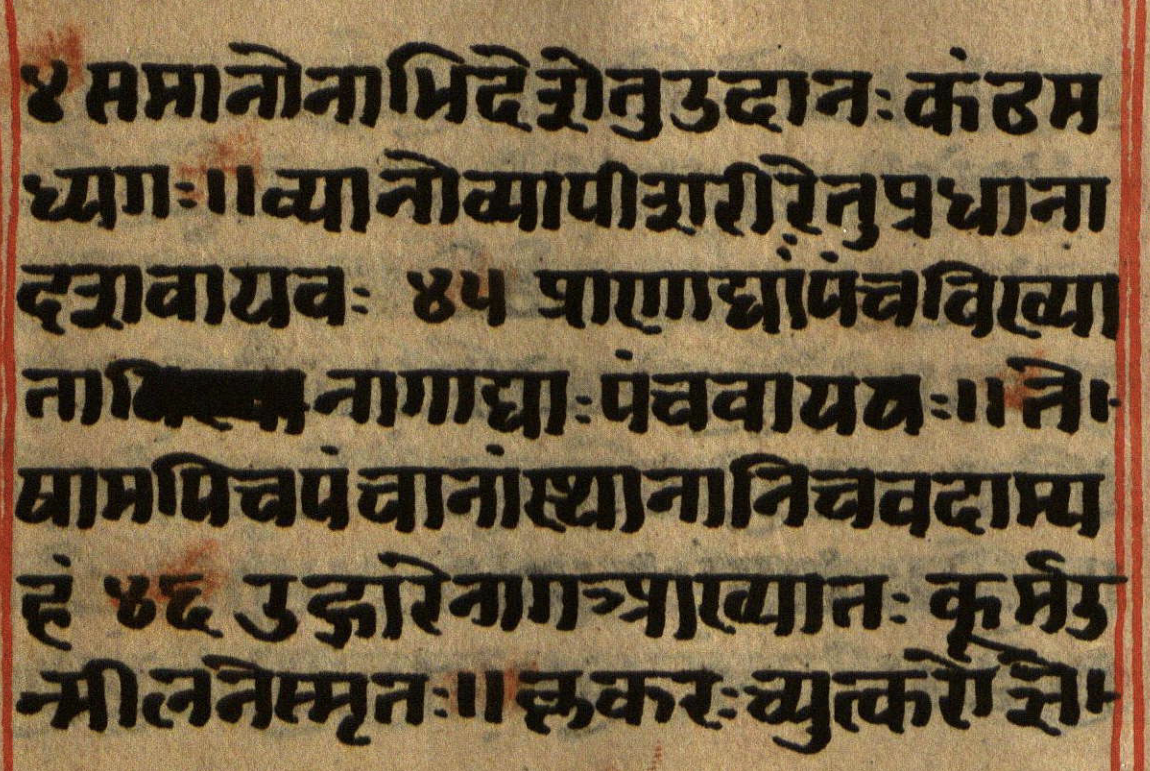 ४ समानोनाभिदेशेतुउदानःकंठम
ध्यगः॥व्यानोव्यापीशरीरेतुप्रधाना
दशवायवः ४५ प्राणाद्यांपंचविख्या
ता नागाद्याःपंचवायवः॥ते।-
षामपिचपंचानांस्थानानिचवदाम्य
हं ४६ उद्गारेनागआख्यातः कूर्मउ
न्मीलनेस्मृतः॥कृकरःच्युत्करोज्ञे।-